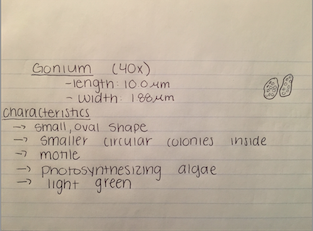 Gonium (40x)
- length: 100 μm
- width: 188μm
characteristics
→ small, oval shape
→ smaller circular colonies inside
→ motile
→ photosynthesizing algae
→ light green